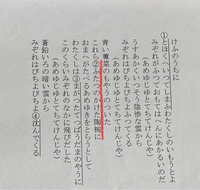 けふのうちに
①とほくへいつてしまふわたくしのいもうとよ
みぞれがふつておもてはへんにあかるいのだ
（あめゆじゆとてちてけんじや）
うすあかくいつそう陰惨な雲から
みぞれはびちよびちよふつてくる
（あめゆじゆとてちてけんじや）
青い蓴菜のもやうのついた
これら②ふたつのかけた陶椀に
おまへがたべるあめゆきをとらうとして
わたくしは③まがつたてつぱうだまのやうに
このくらいみぞれのなかに飛びだした
（あめゆじゆとてちてけんじや）
蒼鉛いろの暗い雲から
みぞれはびちよびちよ④沈んでくる